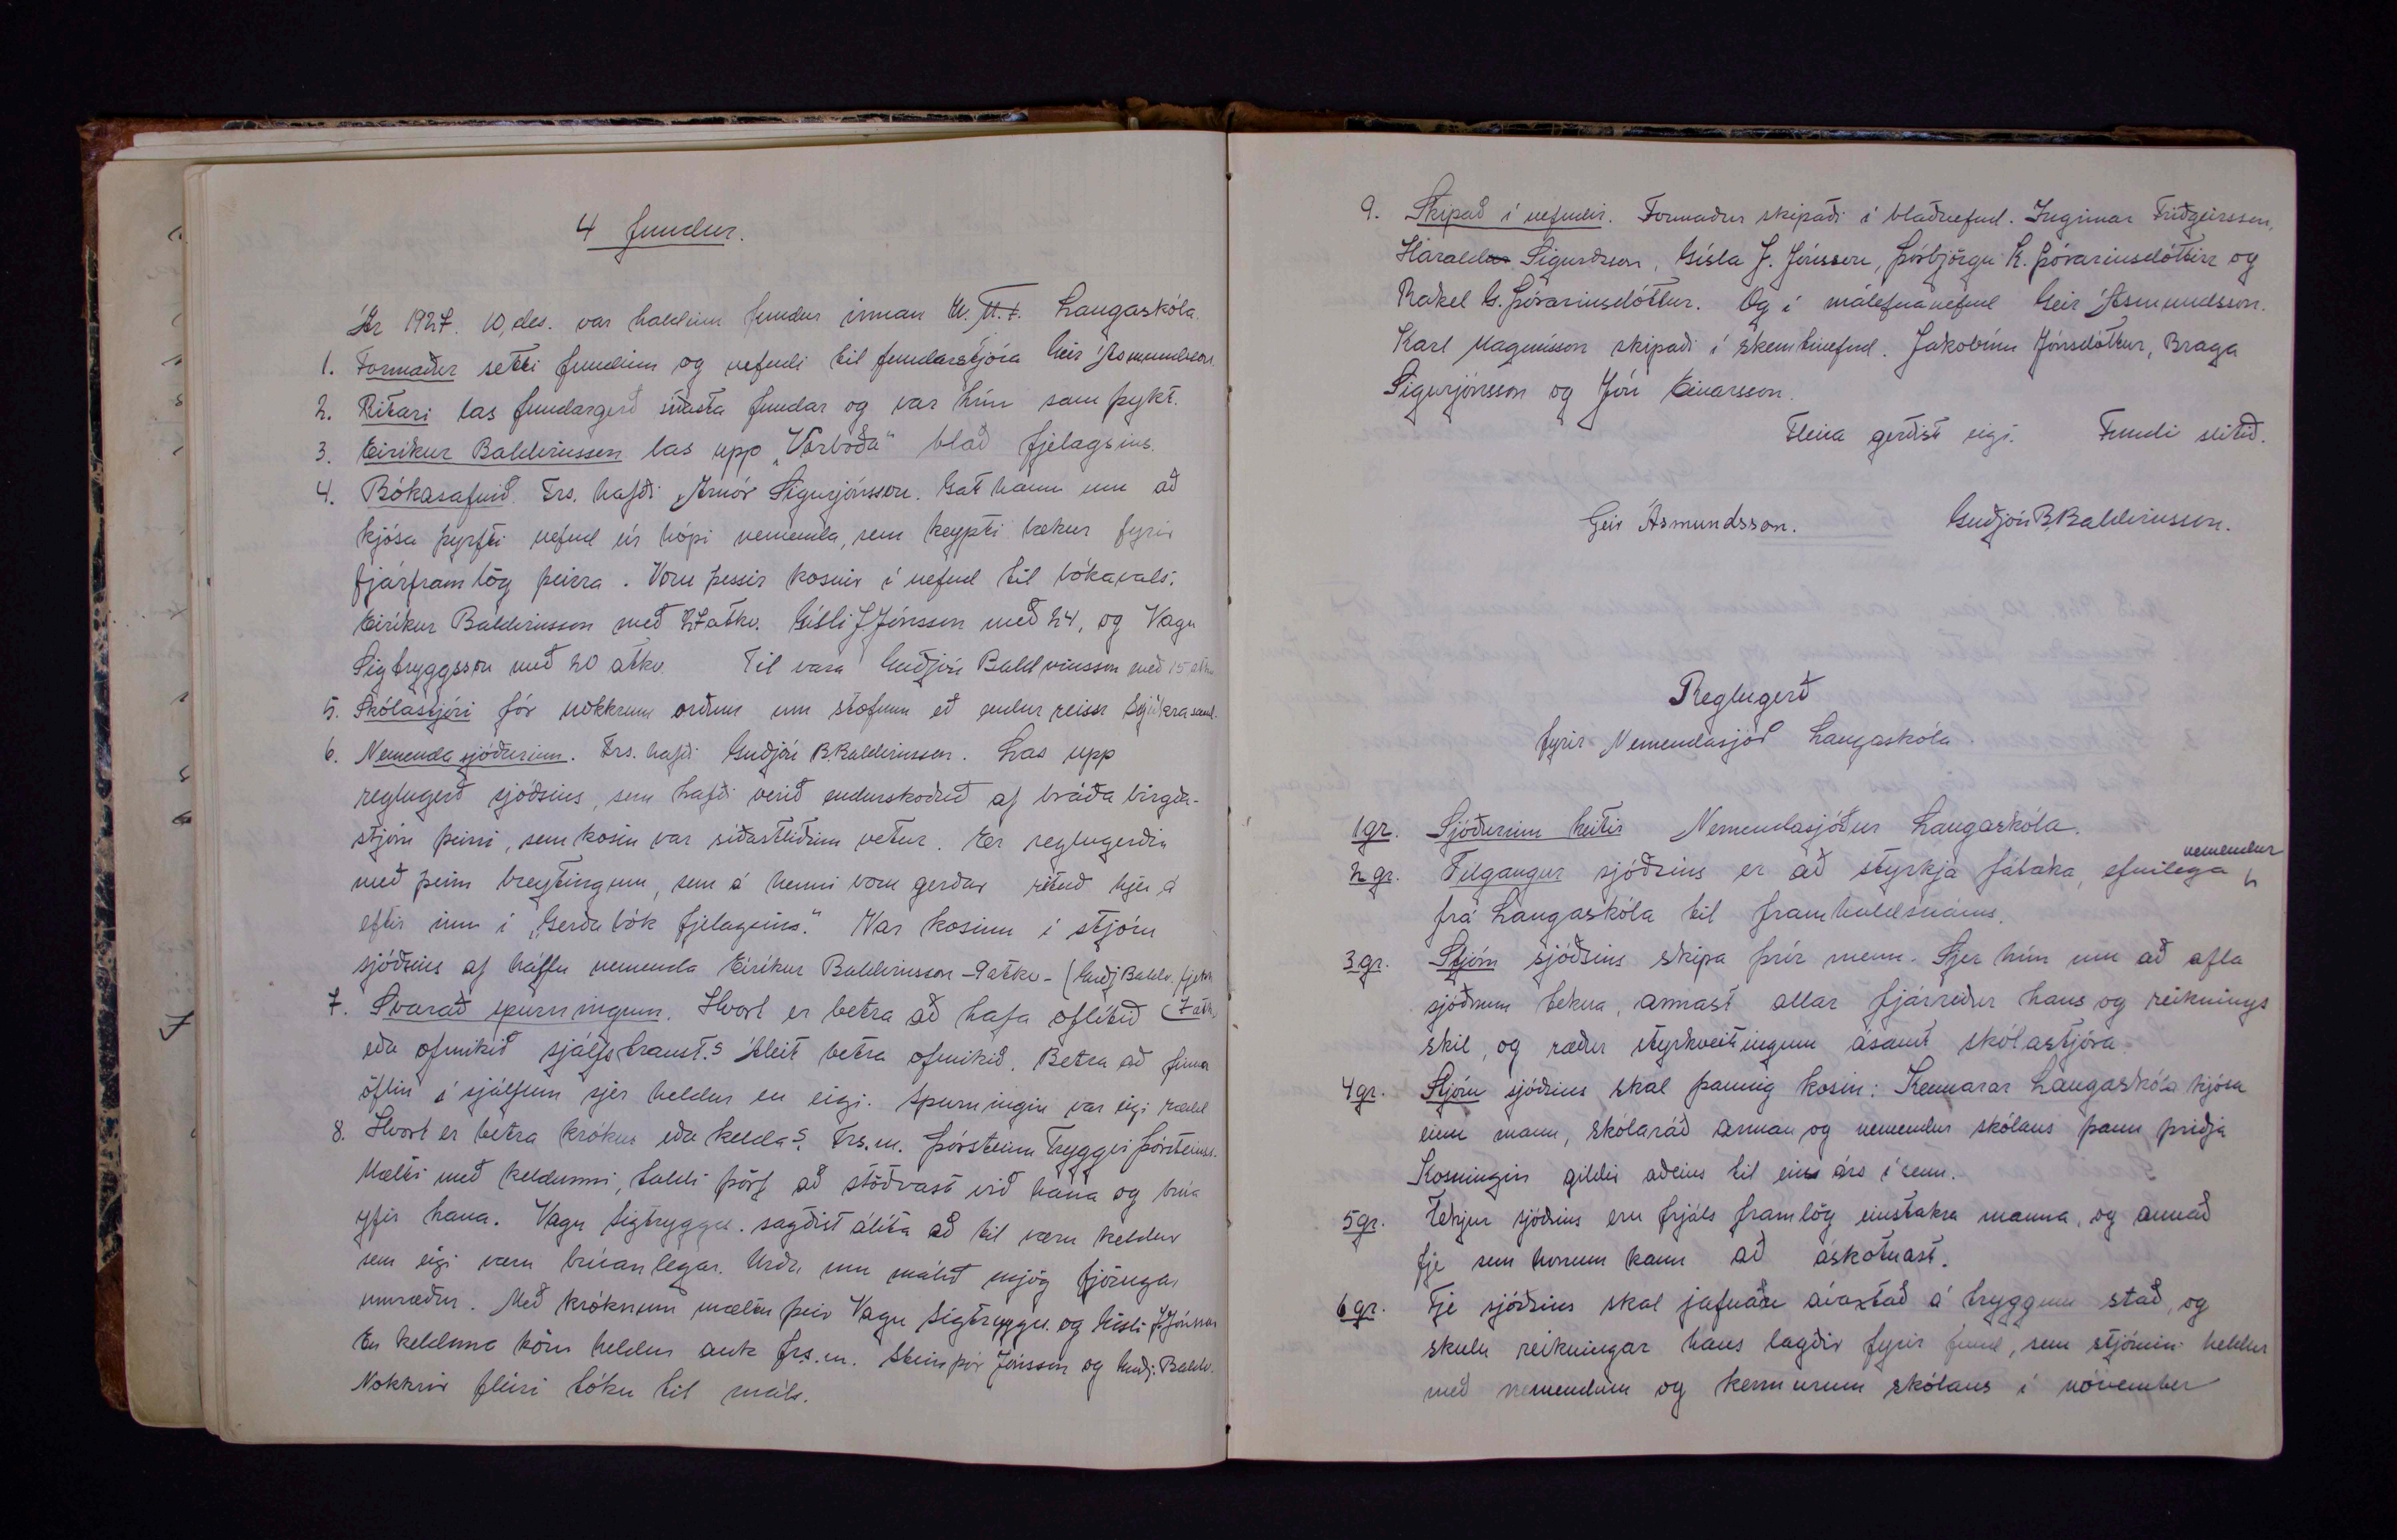 4 fundur.
Ár 1927. 10, des. var haldinn fundur innan U.M.F. Laugaskóla.
1. Formaður setti fundinn og nefndi til fundarstjóra Geir Ásmundsson.
2. Ritari las fundargerð síðasta fundar og var hún samþykt.
3. Eiríkur Baldvinsson las upp „Vorboða" blað fjelagsins.
4. Bókasafnið. Frs. hafði Arnór Sigurjónsson. Gat hann um að
kjósa þyrfti nefnd úr hópi nemenda, sem keypti bækur fyrir
fjárframlög þeirra. Voru þessir kosnir í nefnd til bókavals:
Eiríkur Baldvinsson með 27 atkv. Gísli J. Jónsson með 24, og Vagn
Sigtryggsson með 20 atkv. Til vara Guðjón Baldvinsson með 15 atkv
5. Skólastjóri fór nokkrum orðum um stofnun eð endur reisn Sjúkrasaml.
6. Nemendasjóðurinn. Frs. hafði Guðjón B. Baldvinsson. Las upp
reglugerð sjóðsins, sem hafði verið endurskoðuð af bráða birgða-
stjórn þeirri, sem kosin var síðastliðinn vetur. Er reglugerðin
með þeim breytingum, sem á henni voru gerðar rituð hjer á
eftir inn í „Gerðabók fjelagsins." Var kosinn í stjórn
sjóðsins af hálfu nemenda Eiríkur Baldvinsson - 9 atkv - (Guðj Baldv. fjekk
7 atk.
7. Svarað spurningum. Hvort er betra að hafa oflítið
eða ofmikið sjálfstraust? Áleit betra ofmikið. Betra að finna
öflin í sjálfum sjer heldur en eigi. Spurningin var eigi rædd
8. Hvort er betra krókur eða kelda? Frs.m. Þórsteinn Tryggvi Þórsteinss.
Mælti með keldunni, taldi þörf að stöðvast við hana og brúa
yfir hana. Vagn Sigtryggss. sagðist álíta að til væru keldur
sem eigi væru brúanlegar. Urðu um málið mjög fjörugar
umræður. Með króknum mæltu þeir Vagn Sigtryggss. og Gísli J. Jónsson
En kelduna kösu heldur auk frs.m. Steinþór Jónsson og Guðj. Baldv.
Nokkrir fleiri tóku til máls.
9. Skipað í nefndir. Formaður skipaði í blaðnefnd. Ingimar Friðgeirsson,
Harald Sigurðsson, Gísla J. Jónsson, Þórbjörgu K. Þórarinsdóttir og
Rakel G. Þórarinsdóttur. Og í málefnanefnd Geir Ásmundsson.
Karl Magnússon skipaði í skemtinefnd. Jakobínu Jónsdóttur, Braga
Sigurjónsson og Jón Einarsson.
Fleira gerðist eigi. Fundi slitið.
Geir Ásmundsson. Guðjón B. Baldvinsson.
Reglugerð
fyrir Nemendasjóð Laugaskóla.
1 gr. Sjóðurinn heitir Nemendasjóður Laugaskóla.
2 gr. Tilgangur sjóðsins er að styrkja fátæka, efnilega nemendur
frá Laugaskóla til framhaldsnáms.
3 gr. Stjórn sjóðsins skipa þrír menn. Sjer hún um að afla
sjóðnum tekna, annast allar fjárreiður hans og reiknings
skil, og ræður styrkveitingum ásamt skólastjóra.
4 gr. Stjórn sjóðsins skal þannig kosin: Kennarar Laugaskóla kjósa
einn mann, skólaráð annan og nemendur skólans þann þriðja
Kosningin gildir aðeins til eins árs í senn.
5 gr. Tekjur sjóðsins eru frjáls framlög einstakra manna, og annað
fje sem honum kann að áskotnast.
6 gr. Fje sjóðsins skal jafnaðe ávaxtað á tryggum stað, og
skulu reikningar hans lagðir fyrir fund, sem stjórnin heldur
með nemendum og kennurum skólans í nóvember